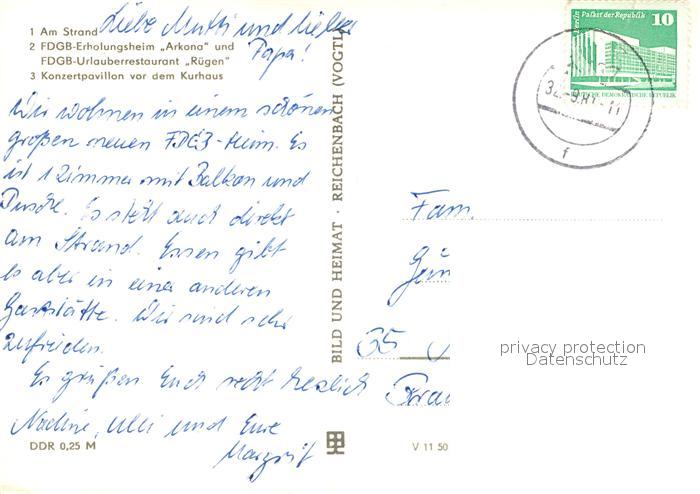 1 Am Strand
2 FDGB-Erholungsheim „Arkona" und
FDGB-Urlauberrestaurant „Rügen"
3 Konzertpavillon vor dem Kurhaus
Liebe Mutti und lieber
Papa!
Wir wohnen in einem schönen
großen neuen FDGB-Heim. Es
ist 1 Zimmer mit Balkon und
Dusche. Es steht auch direkt
am Strand. Essen gibt
es aber in einer anderen
Gaststätte. Wir sind sehr
zufrieden.
Es grüßen Euch recht herzlich
Nadine, Ulli und Eure
Margrit
DDR 0,25 M
BILD UND HEIMAT · REICHENBACH (VOGTL)
V 11 50
Berlin, Palast der Republik
10
DEUTSCHE DEMOKRATISCHE REPUBLIK
f
Fam.
65
privacy protection
Datenschutz